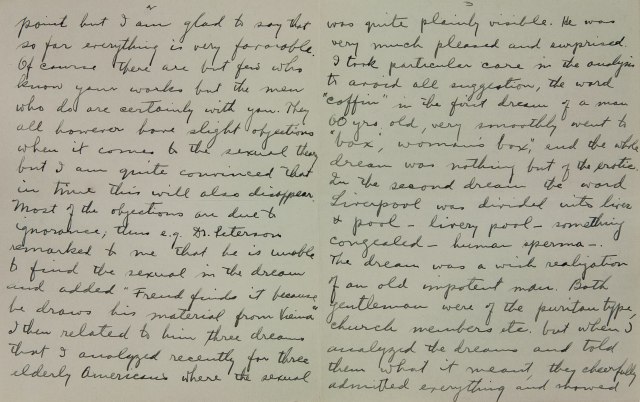 "
point but I am glad to say that
so far everything is very favorable.
Of course there are but few who
know your works but the men
who do are certainly with you. They
all however have slight objections
when it comes to the sexual theory
but I am quite convinced that
in time this will also disappear.
Most of the objections are due to
ignorance; thus e.g. Dr. Peterson
remarked to me that he is unable
to find the sexual in the dream
and added "Freud finds it because
he draws his material from Viena"
I then related to him three dreams
that I analyzed recently for three
elderly Americans where the sexual
3
was quite plainly visible. He was
very much pleased and surprised.
I took particular care in the analysis
to avoid all suggestion, the word
"coffin" in the first dream of a man
60 yrs old, very smoothly went to
"box", woman's box", and the whole
dream was nothing but of the erotic.
In the second dream the word
Liverpool was divided into liver
& pool – livery pool – something
congealed – human sperma –.
The dream was a wish realization
of an old impotent man. Both
gentleman were of the puritan type,
church members etc. but when I
analyzed the dreams and told
them what it meant, they cheerfully
admitted everything and showed